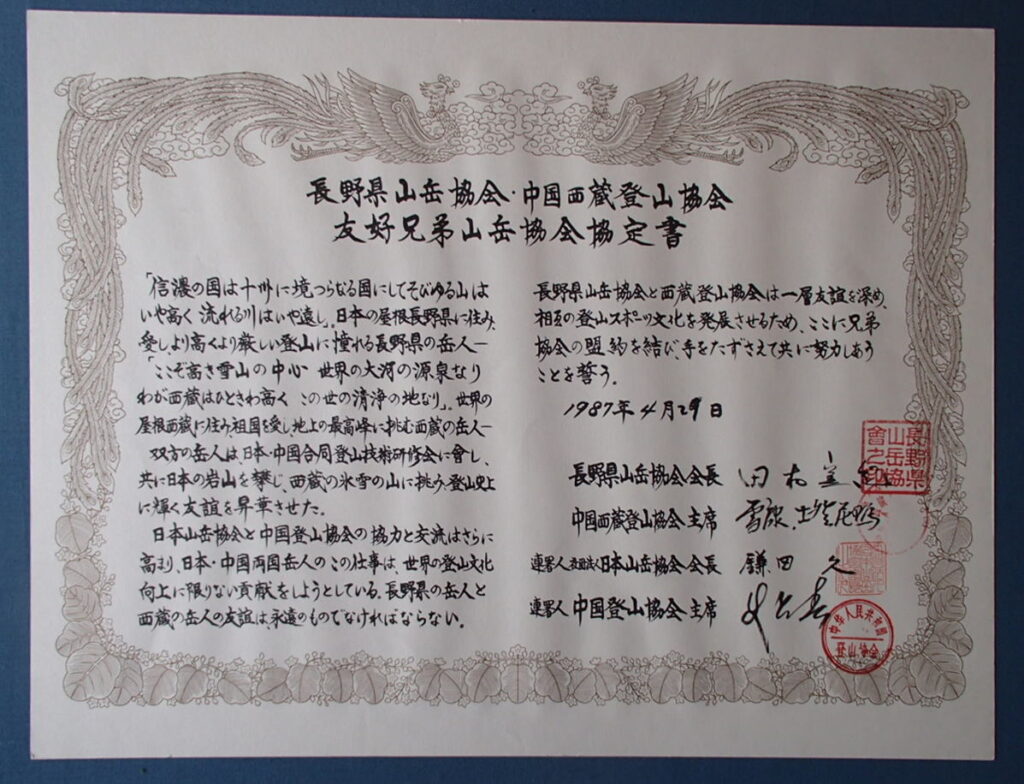 長野県山岳協会・中国西蔵登山協会
友好兄弟山岳協会協定書
「信濃の国は十州に境つらなる国にしてそびゆる山は
いや高く 流れる川はいや遠し」。日本の屋根長野県に住み、
愛しより高くより厳しい登山に憧れる長野県の岳人ー
「ここぞ高き雪山の中心 世界の大河の源泉なり
わが西蔵はひときわ高く この世の清浄の地なり」。世界の
屋根西蔵に住み、祖国を愛し、地上の最高峰に挑む西蔵の岳人ー
双方の岳人は、日本・中国合同登山技術研修会に會し、
共に日本の岩山を攀じ、西蔵の氷雪の山に挑み、登山史上
に輝く友誼を昇華させた。
日本山岳協会と中国登山協会の協力と交流はさらに
高まり、日本・中国両国岳人のこの仕事は、世界の登山文化
向上に限りない貢献をしようとしている。長野県の岳人と
西蔵の岳人の友誼は、永遠のものでなければならない。
長野県山岳協会と西蔵登山協会は一層友誼を深め、
相互の登山スポーツ文化を発展させるため、ここに兄弟
協会の盟約を結び、手をたずさえて共に努力しあう
ことを誓う。
1987年4月29日
長野県山岳協会会長
中国西蔵登山協会主席
連署人 社団法人日本山岳協会会長 鎌田 久
連署人 中国登山協会主席
長野県
山岳協
會之印
中华人民共和國
登山协会